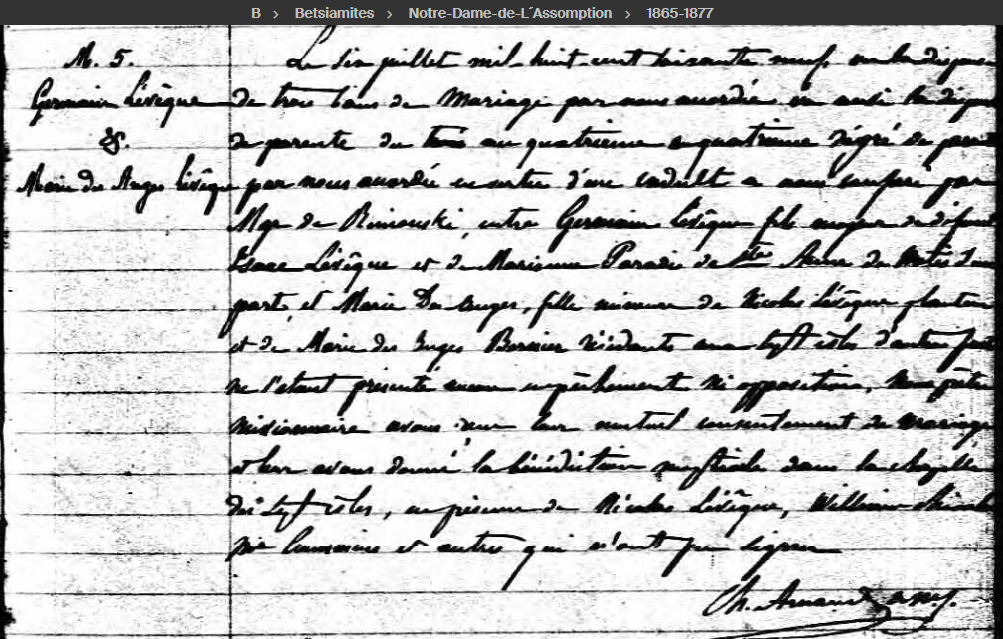 B > Betsiamites > Notre-Dame-de-L´Assomption > 1865-1877
M. 5.
Germain Lévêque
&.
Marie des Anges Lévêque
Le Six juillet mil huit cent soixante neuf, vu la dispense
de trois bans de Mariage par nous accordée vu aussi la dispense
de parenté du au quatrieme quatrieme dégré de parenté
par nous accordée en vertu d'une indult a nous conféré par
Mgr de Rimouski, entre Germain Lévêque fils majeur de défunt
Isaac Lévêque et de Marianne Paradis de Ste Anne des Monts d'une
part, et Marie Des Anges, fille mineure de Nicolas Lévêque
et de Marie des Anges Bernier résidants aux Sept isles d'autre part
ne s'étant présenté aucun empêchement ni opposition, Nous prêtre
Missionnaire avons reçu leur mutuel consentement de Mariage
et leur avons donné la bénédiction nuptiale dans la chapelle
des Sept isles, en présence de Nicolas Lévêque, William
et autres qui n'ont pu signer
Ch. Arnaud